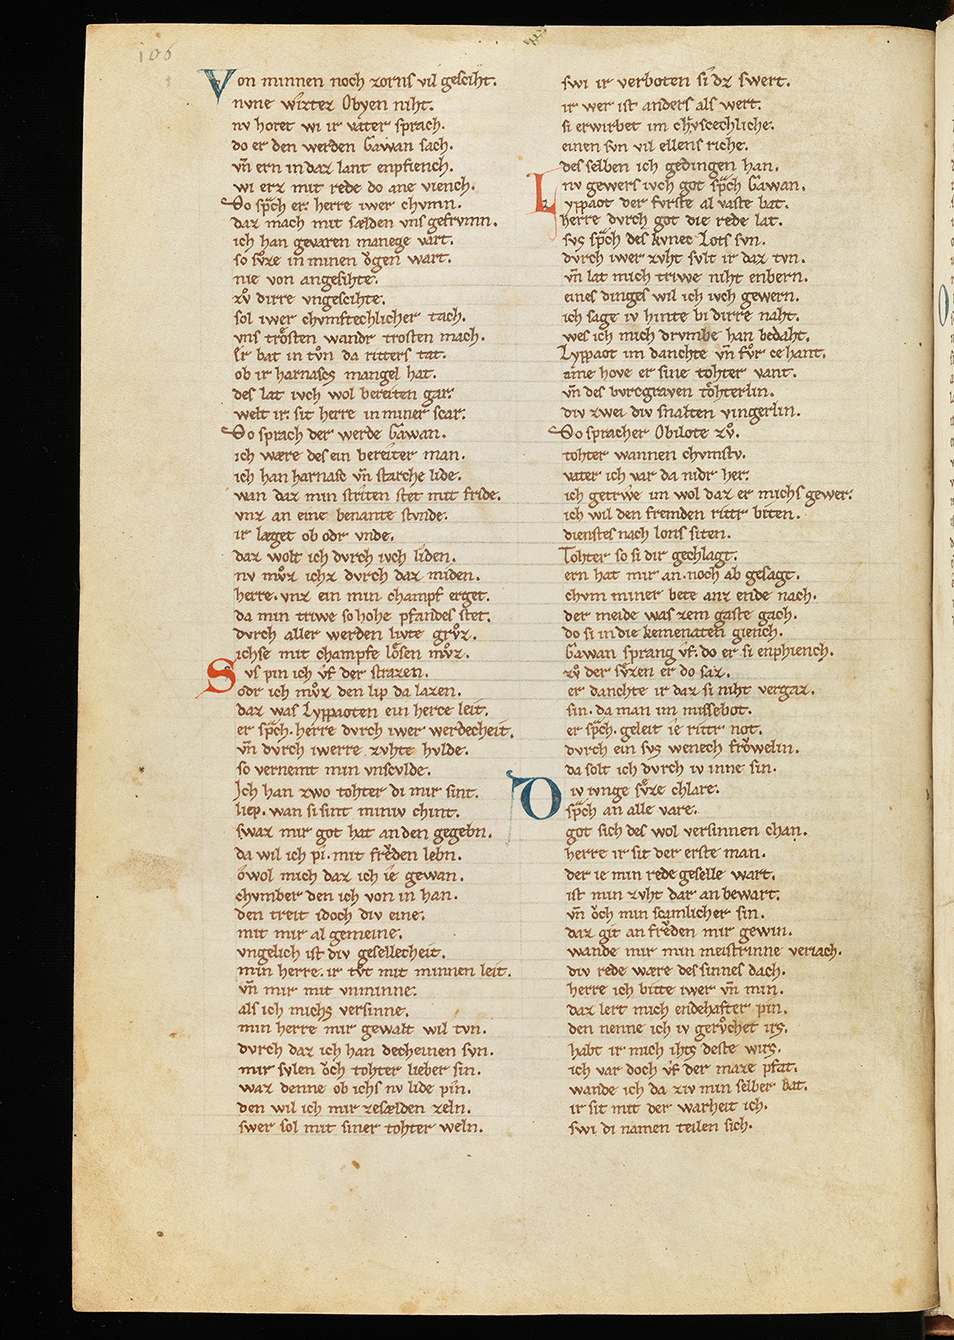 106
Von minnen noch zorns vil gesciht.
nvne wizzet Obyen niht.
nv horet wi ir vater sprach.
do er den werden Gawan sach.
vn̄ ern in daz lant enpfiench.
wi erz mit rede do ane viench.
Do sp̄ch er. herre iwer chvmn.
daz mach mit sælden vns gefrvmn.
ich han gevaren manege vart.
so sv̊ze in minen ǒgen wart.
nie von angesihte.
zv̊ dirre vngescihte.
sol iwer chvmftechlicher tach.
vns trǒsten wandr trosten mach.
Er bat in tv̊n da ritters tat.
ob ir harnasces mangel hat.
des lat ivch wol bereiten gar.
welt ir. sit herre in miner scar.
Do sprach der werde Gawan.
ich wære des ein bereiter man.
ich han harnasc vn̄ starche lide.
wan daz min striten stet mit fride.
vnz an eine benante stvnde.
ir læget ob odr vnde.
daz wolt ich dvrch ivch liden.
nv mv̊z ichz dvrch daz miden.
herre. vnz ein min champf erget.
da min triwe so hohe pfandes stet.
dvrch aller werden livte grv̊z.
ichse mit champfe lǒsen mv̊z.
Svs pin ich v̊f der strazen.
odr ich mv̊z den lip da lazen.
daz was Lyppaoten ein herce leit.
er sp̄ch. herre dvrch iwer werdecheit.
vn̄ dvrch iwerre zvhte hvlde.
so vernemt min vnscvlde.
Ich han zwo tohter di mir sint.
liep. wan si sint miniv chint.
swaz mir got hat an den gegebn.
da wil ich pi. mit frěden lebn.
ǒwol mich daz ich ie gewan.
chvmber den ich von in han.
den treit idoch div eine.
mit mir al gemeine.
vngelich ist div gesellecheit.
min herre. ir tv̊t mit minnen leit.
vn̄ mir mit vnminne.
als ich michs versinne.
min herre mir gewalt wil tvn.
dvrch daz ich han decheinen svn.
mir svlen ǒch tohter lieber sin.
waz denne ob ichs nv lide pin.
den wil ich mir ze sælden zeln.
swer sol mit siner tohter weln.
swi ir verboten si dz swert.
ir wer ist anders als wert.
si erwirbet im chv̊scechliche.
einen svn vil ellens riche.
des selben ich gedingen han.
nv gewers ivch got sp̄ch Gawan.
Lyppaot der fvrste al vaste bat.
herre dvrch got die rede lat.
svs sp̄ch des kvnec Lots svn.
dvrch iwer zvht svlt ir daz tvn.
vn̄ lat mich triwe niht enbern.
eines dinges wil ich ivch gewern.
ich sage iv hinte bi dirre naht.
wes ich mich drvmbe han bedaht.
Lyppaot im danchte vn̄ fv̊r ce hant.
ame hove er sine tohter vant.
vn̄ des bvrcgraven tǒhterlin.
div zwei div snalten vingerlin.
Do spracher Obilote zv̊.
tohter wannen chvmstv.
vater ich var da nidr her.
ich getrwe im wol daz er michs gewer.
ich wil den fremden rittr biten.
dienstes nach lons siten.
Tohter so si dir gechlagt.
ern hat mir an. noch ab gesagt.
chvm miner bete anz ende nach.
der meide was zem gaste gach.
do si in die kemenaten giench.
Gawan sprang v̊f. do er si enphiench.
zv̊ der sv̊zen er do saz.
er danchte ir daz si niht vergaz.
sin. da man im missebot.
er sp̄ch. geleit ie rittr not.
dvrch ein svs wenech frǒwelin.
da solt ich dvrch iv inne sin.
Div ivnge sv̊ze chlare.
sp̄ch an alle vare.
got sich des wol versinnen chan.
herre ir sit der erste man.
der ie min rede geselle wart.
ist min zvht dar an bewart.
vn̄ ǒch min scamlicher sin.
daz git an frěden mir gewin.
wande mir min meistrinne veriach.
div rede wære des sinnes dach.
herre ich bitte iwer vn̄ min.
daz lert mich endehafter pin.
den nenne ich iv gerv̊chet irs.
habt ir mich ihts deste wirs.
ich var doch v̊f der maze pfat.
wande ich da ziv min selber bat.
ir sit mit der warheit ich.
swi di namen teilen sich.